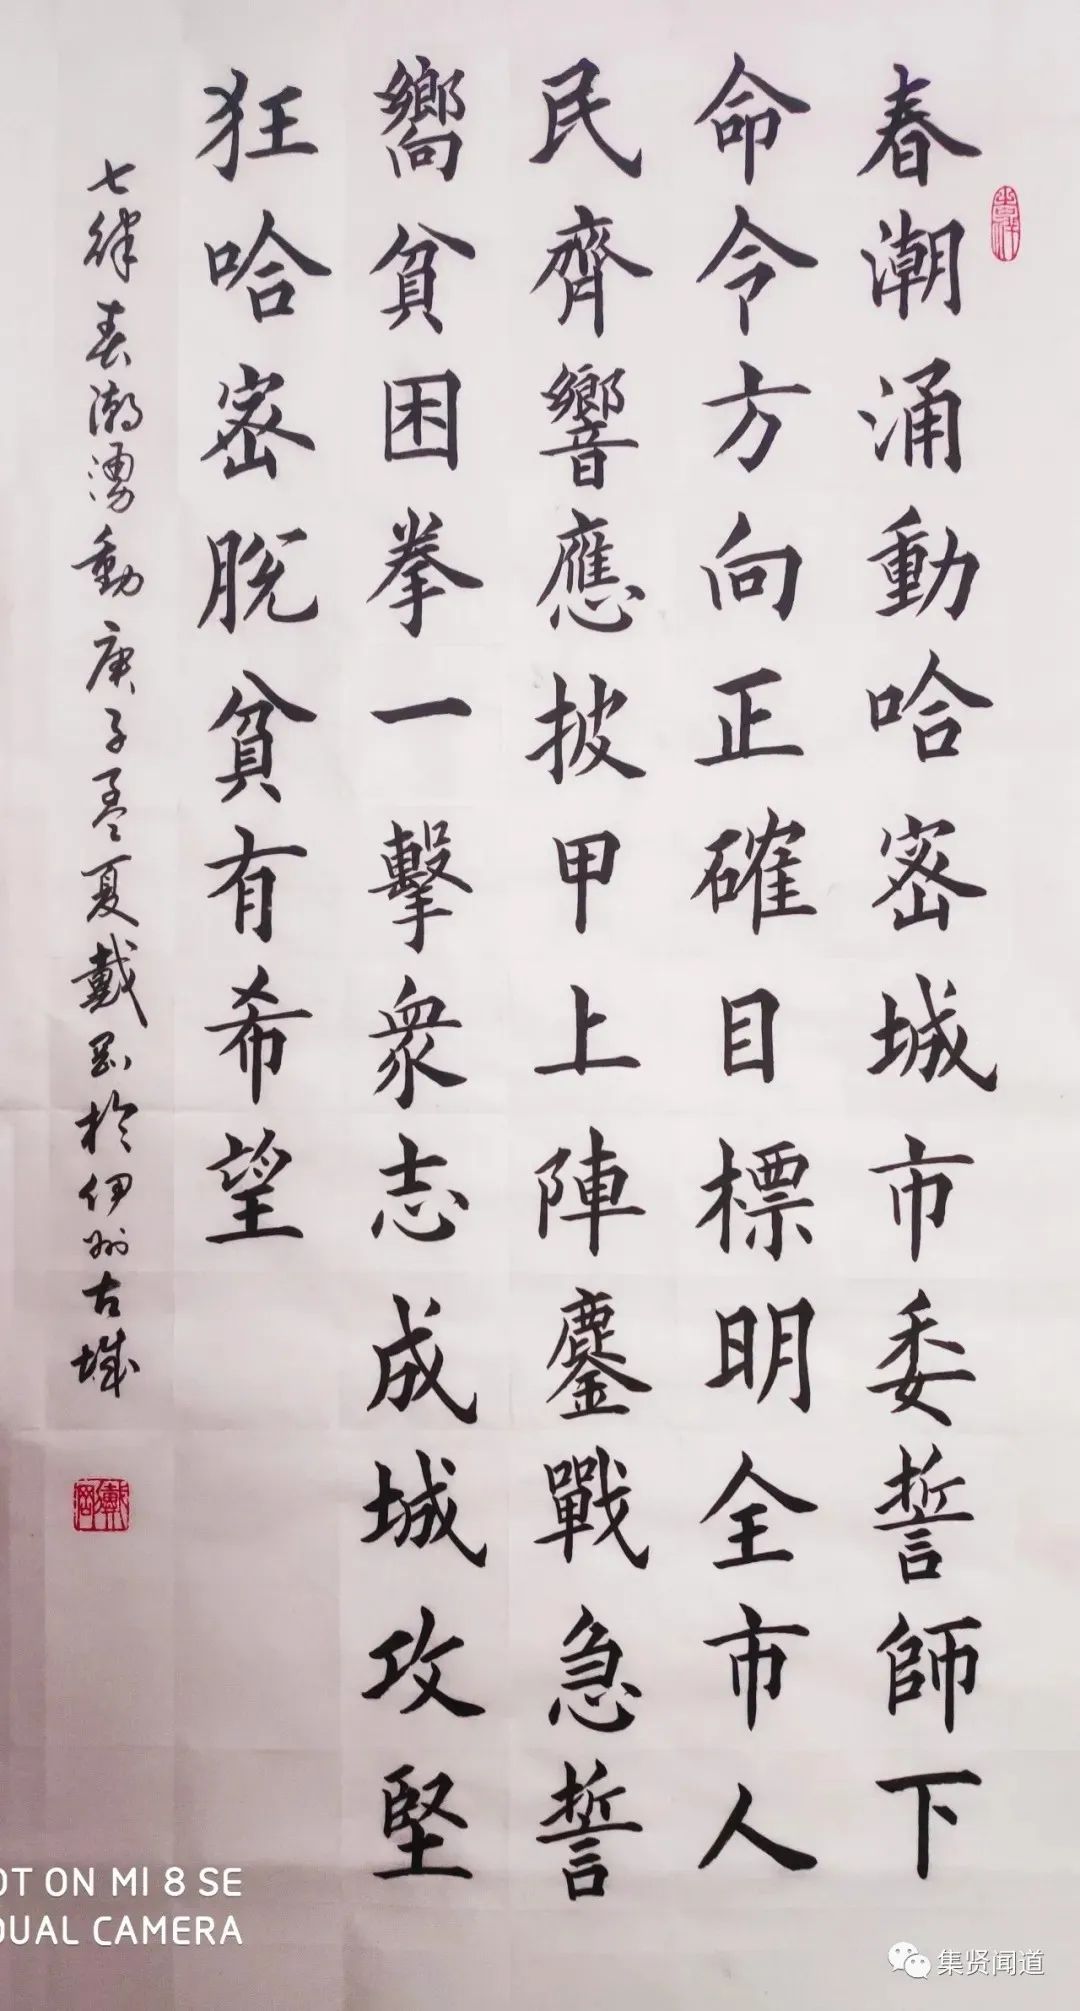 春潮涌動哈密城市委誓師下
命令方向正確目標明全市人
民齊響應披甲上陣鏖戰急誓
嚮貧困拳一擊衆志成城攻堅
狂哈密脫貧有希望
七律春潮湧動庚子孟夏戴岩於伊州古城
OT ON MI 8 SE
DUAL CAMERA
集贤闻道